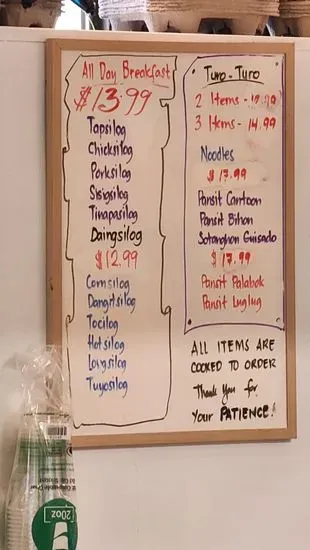 All Day Breakfast
$13.99
Tapsilog
Chicksilog
Porksilog
Sisigsilog
Tinapasilog
Daingsilog
$12.99
Cornsilog
Dangitsilog
Tocilog
Hotsilog
Longsilog
Tuyosilog
Turo-Turo
2 Items -
3 Items - 14.99
Noodles
$17.99
Pansit Cantoon
Pansit Bihon
Sotanghon Guisado
$17.99
Pansit Palabok
Pansit Luglug
ALL ITEMS ARE
COOKED TO ORDER
Thank You for
Your PATIENCE!
20oz